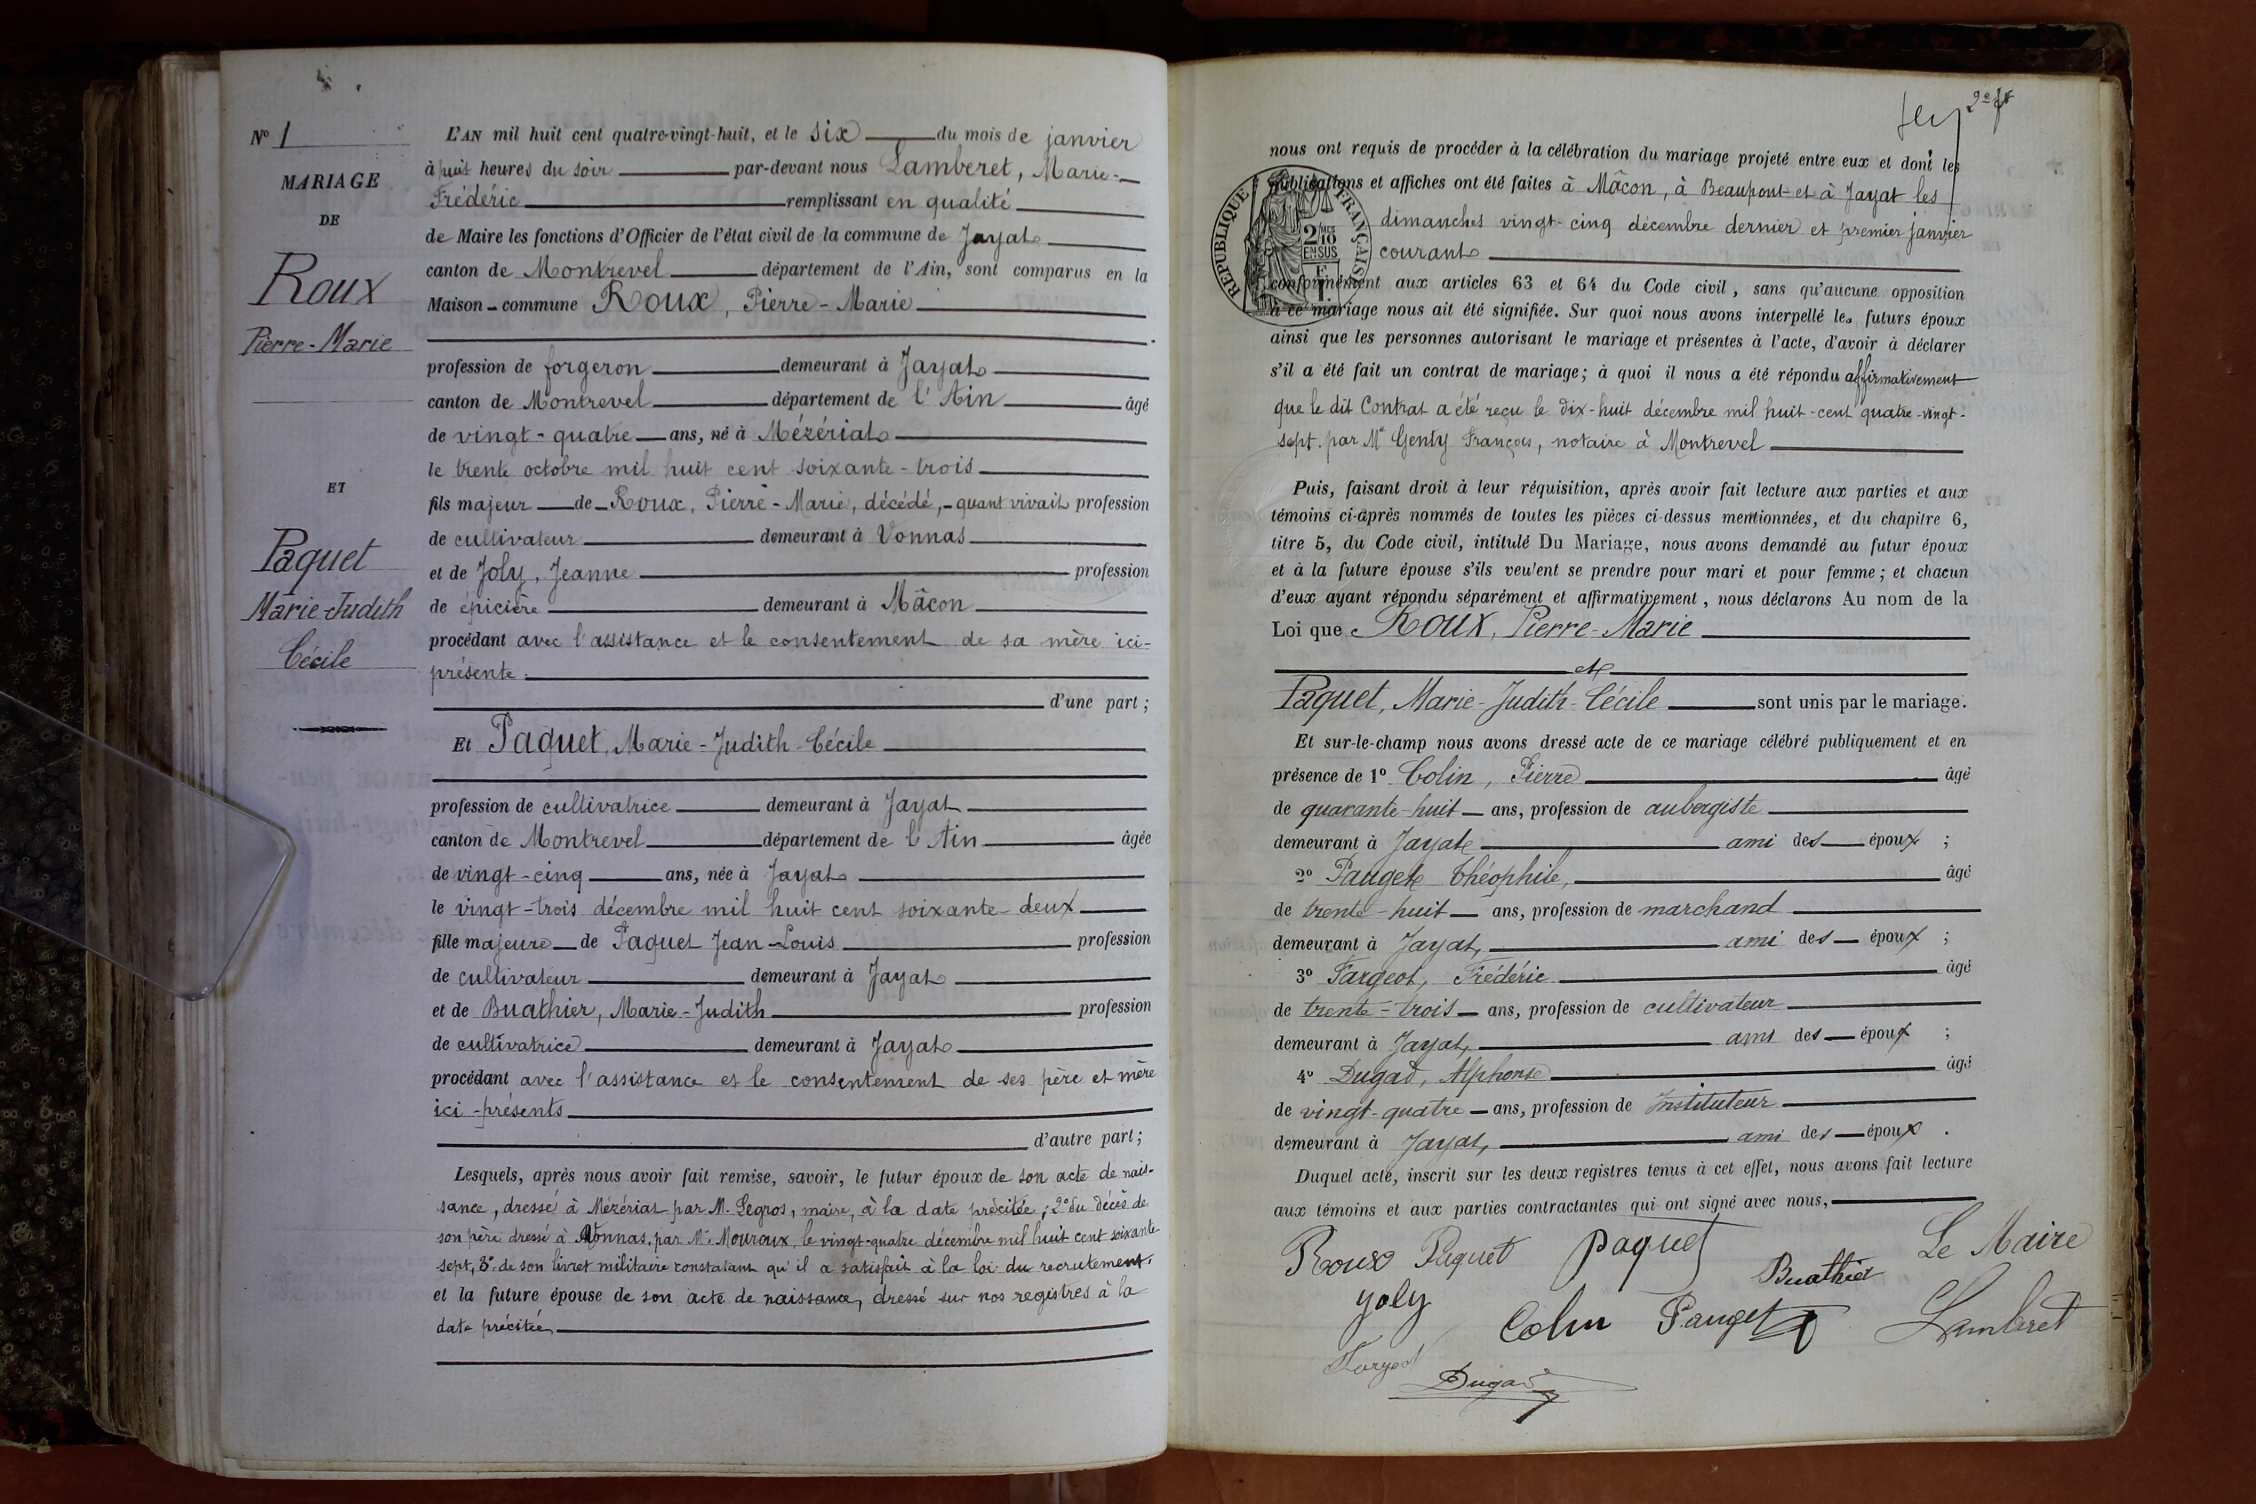 N° 1
MARIAGE
DE
Roux
Pierre-Marie
ET
Paquet
Marie-Judith
Cécile
L'AN mil huit cent quatre-vingt-huit, et le six du mois de janvier
à huit heures du soir par-devant nous Lamberet, Marie-
Frédéric remplissant en qualité
de Maire les fonctions d'Officier de l'état civil de la commune de Jayat
canton de Montrevel département de l'Ain, sont comparus en la
Maison-commune Roux, Pierre-Marie
profession de forgeron demeurant à Jayat
canton de Montrevel département de l'Ain âgé
de vingt-quatre ans, né à Mézériat
le trente octobre mil huit cent soixante-trois
fils majeur de Roux, Pierre-Marie, décédé, quant vivait profession
de cultivateur demeurant à Vonnas
et de Joly, Jeanne profession
de épicière demeurant à Mâcon
procédant avec l'assistance et le consentement de sa mère ici-
présente.
d'une part ;
Et Paquet, Marie-Judith-Cécile
profession de cultivatrice demeurant à Jayat
canton de Montrevel département de l'Ain âgée
de vingt-cinq ans, née à Jayat
le vingt-trois décembre mil huit cent soixante-deux
fille majeure de Paquet Jean-Louis profession
de cultivateur demeurant à Jayat
et de Buathier, Marie-Judith profession
de cultivatrice demeurant à Jayat
procédant avec l'assistance et le consentement de ses père et mère
ici-présents
d'autre part ;
Lesquels, après nous avoir fait remise, savoir, le futur époux de son acte de nais-
sance, dressé à Mézériat par M. Legros, maire, à la date précitée ; 2° du décès de
son père dressé à Vonnas, par Mr. Mouroux, le vingt-quatre décembre mil huit cent soixante-
sept, 3° de son livret militaire constatant qu'il a satisfait à la loi du recrutement.
et la future épouse de son acte de naissance, dressé sur nos registres à la
date précitée,
2e ft
nous ont requis de procéder à la célébration du mariage projeté entre eux et dont les
publications et affiches ont été faites à Mâcon, à Beaupont et à Jayat les
dimanches vingt-cinq décembre dernier et premier janvier
courant
RÉPUBLIQUE FRANÇAISE
2/10 EN SUS
conformément aux articles 63 et 64 du Code civil, sans qu'aucune opposition
à ce mariage nous ait été signifiée. Sur quoi nous avons interpellé les futurs époux
ainsi que les personnes autorisant le mariage et présentes à l'acte, d'avoir à déclarer
s'il a été fait un contrat de mariage ; à quoi il nous a été répondu affirmativement
que le dit Contrat a été reçu le dix-huit décembre mil huit-cent quatre-vingt-
sept. par Me Genty François, notaire à Montrevel
Puis, faisant droit à leur réquisition, après avoir fait lecture aux parties et aux
témoins ci-après nommés de toutes les pièces ci-dessus mentionnées, et du chapitre 6,
titre 5, du Code civil, intitulé Du Mariage, nous avons demandé au futur époux
et à la future épouse s'ils veulent se prendre pour mari et pour femme ; et chacun
d'eux ayant répondu séparément et affirmativement, nous déclarons Au nom de la
Loi que Roux, Pierre-Marie
et
Paquet, Marie-Judith-Cécile sont unis par le mariage.
Et sur-le-champ nous avons dressé acte de ce mariage célébré publiquement et en
présence de 1° Colin, Pierre âgé
de quarante-huit ans, profession de aubergiste
demeurant à Jayat ami des époux ;
2° Pauget Théophile, âgé
de trente-huit ans, profession de marchand
demeurant à Jayat, ami des époux ;
3° Fargeot, Frédéric âgé
de trente-trois ans, profession de cultivateur
demeurant à Jayat, ami des époux ;
4° Dugad, Alphonse âgé
de vingt-quatre ans, profession de Instituteur
demeurant à Jayat, ami des époux .
Duquel acte, inscrit sur les deux registres tenus à cet effet, nous avons fait lecture
aux témoins et aux parties contractantes qui ont signé avec nous,
Roux Paquet paquet Buathier Le Maire
Joly Colin Pauget Lamberet
Fargeot
Dugad